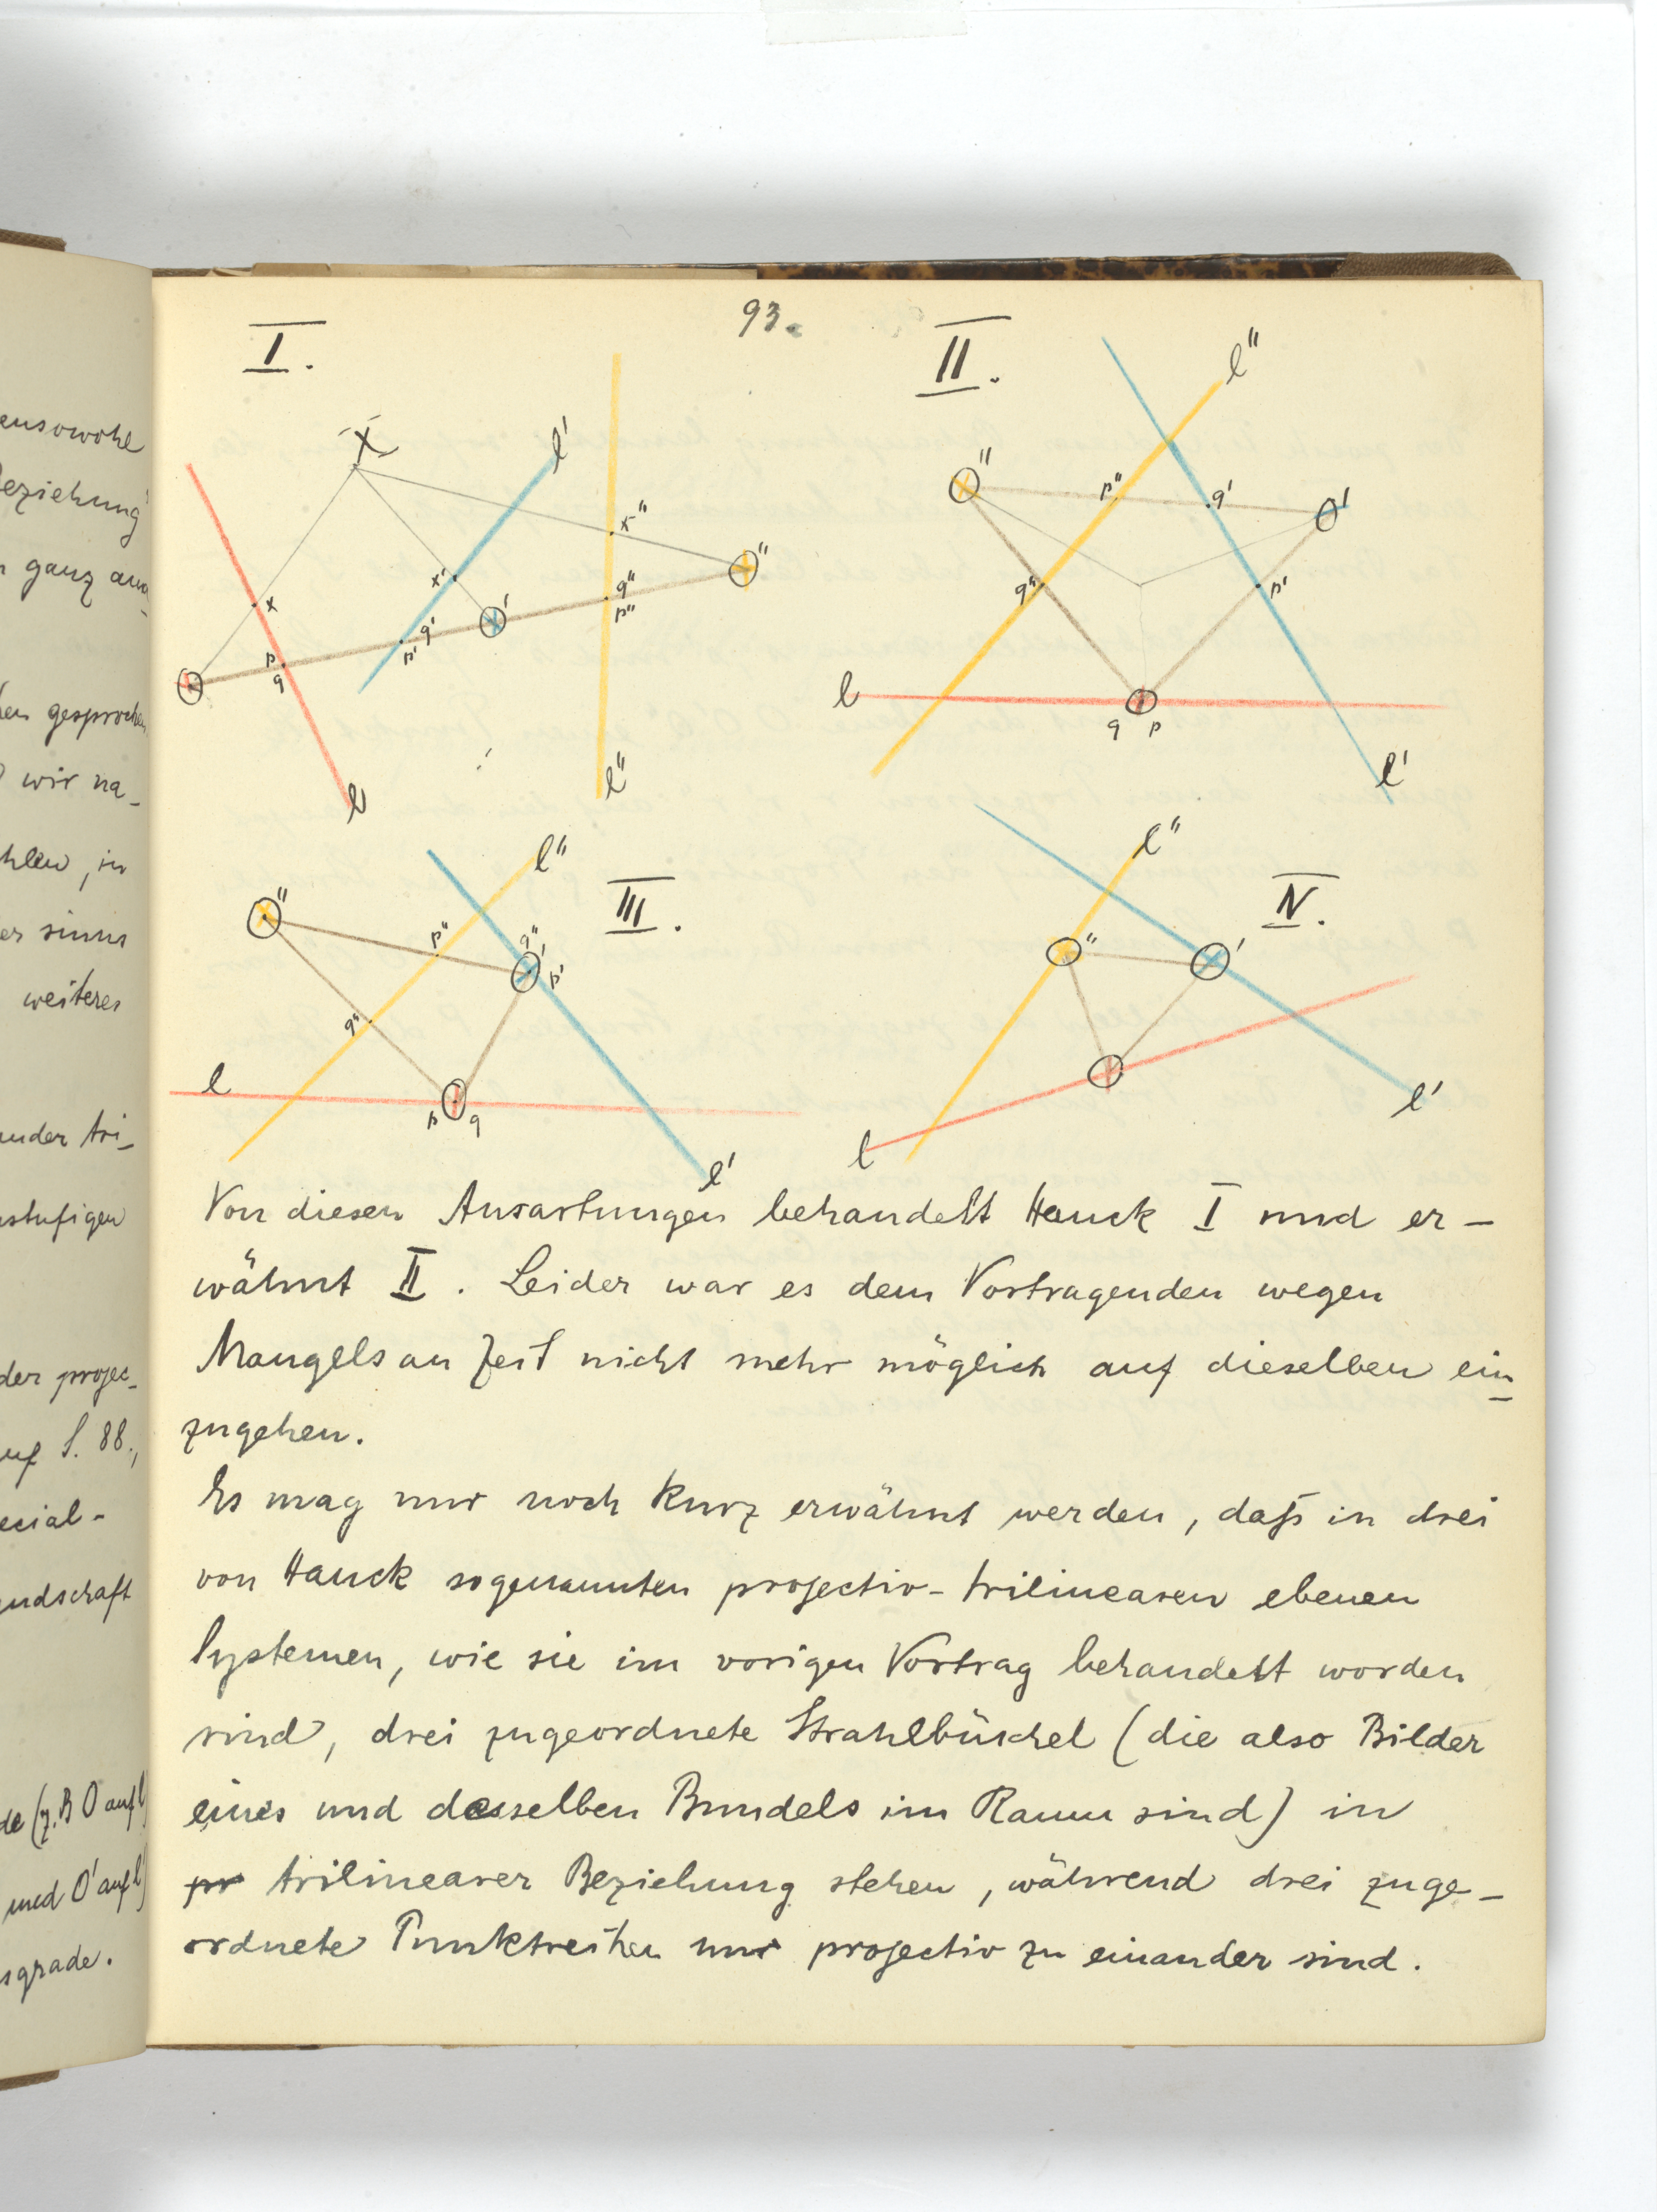 ensowohl
eziehung
ganz aus-
gesprochen
wir na-
hlen, in
weiteres
ander tri-
nstufigen
der projec-
auf S. 88.,
ecial-
ndschaft
de (z. B O auf l
und O' auf l'
sgrade.
93.
I.
X
l'
x
x'
x"
q"
p"
O"
O'
q'
p'
p
q
O
l
l"
II.
l"
O"
p"
q'
O'
q"
p'
l
O
q p
l'
III.
l"
O"
p"
q"
O'
p'
q"
l
O
p q
l'
IV.
l"
O"
O'
O
l
l'
Von diesen Ausartungen behandelt Hauck I und er-
wähnt II. Leider war es dem Vortragenden wegen
Mangels an Zeit nicht mehr möglich auf dieselben ein-
zugehen.
Es mag nur noch kurz erwähnt werden, daß in drei
von Hauck sogenannten projectiv-trilinearen ebenen
Systemen, wie sie im vorigen Vortrag behandelt worden
sind, drei zugeordnete Strahlbüschel (die also Bilder
eines und desselben Bundels im Raum sind) in
pr trilinearer Beziehung stehen, während drei zuge-
ordnete Punktreihen nur projectiv zu einander sind.